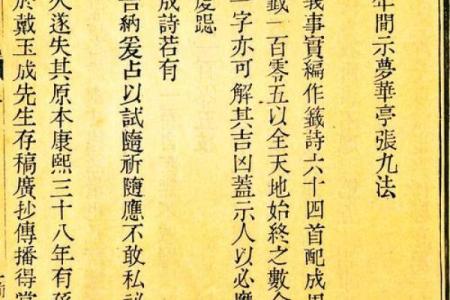 年間示夢華亭張九法
義事實編作籤詩六十四首配成周
籤一百零五以全天地始終之數令
一字亦可解其吉凶蓋示人以必應
度跽
成詩若有
吉納爻占以試隨祈隨應不敢私祕
久遂失其原本康熙三十八年有孫
於戴玉成先生存稿廣抄傳播得嘗